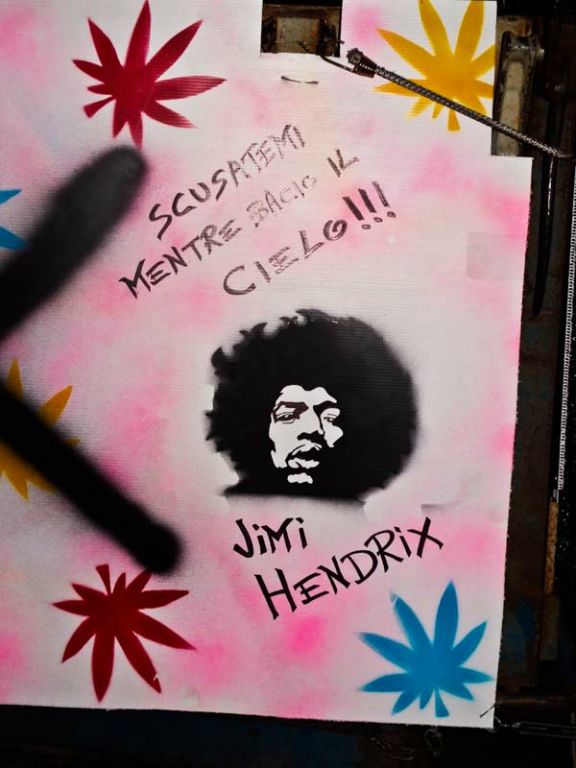 SCUSATEMI
MENTRE BACIO IL
CIELO!!!
JiMi
HENDRiX